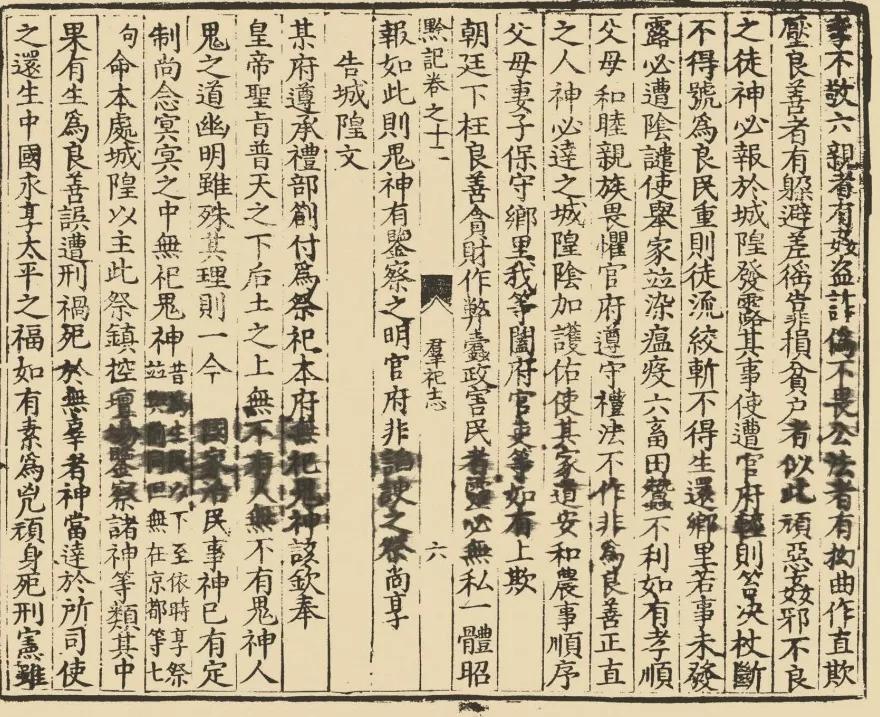 孝不敬六親者有姦盗詐偽不畏公法者有拘曲作直欺
壓良善者有躲避差徭靠損貧户者似此頑惡姦邪不良
之徒神必報於城隍發露其事使遭官府輕則笞决杖斷
不得號為良民重則徒流絞斬不得生還鄉里若事未發
露必遭陰譴使舉家竝染瘟疫六畜田蠶不利如有孝順
父母和睦親族畏懼官府遵守禮法不作非為良善正直
之人神必達之城隍陰加護佑使其家道安和農事順序
父母妻子保守鄉里我等闔府官吏等如有上欺
朝廷下枉良善貪財作弊蠹政害民者靈必無私一體昭
黔記卷之十二 羣祀志 六
報如此則鬼神有鑒察之明官府非諂諛之祭尚享
告城隍文
某府遵承禮部劄付為祭祀本府無祀鬼神該欽奉
皇帝聖旨普天之下后土之上無不有人無不有鬼神人
鬼之道幽明雖殊其理則一今 國家治民事神已有定
制尚念冥冥之中無祀鬼神
昔為生民以下至依時享祭
竝與前同但無在京都等七
句命本處城隍以主此祭鎮控壇場鑒察諸神等類其中
果有生為良善誤遭刑禍死於無辜者神當達於所司使
之還生中國永享太平之福如有素為兇頑身死刑憲雖